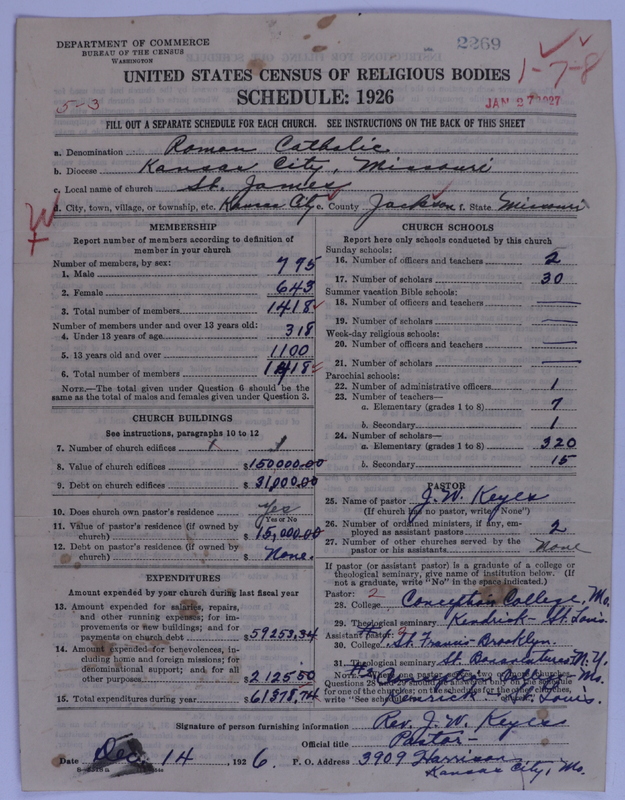 DEPARTMENT OF COMMERCE
BUREAU OF THE CENSUS
WASHINGTON
2269
1-7-8
UNITED STATES CENSUS OF RELIGIOUS BODIES
SCHEDULE: 1926
5-3
JAN 27 1927
FILL OUT A SEPARATE SCHEDULE FOR EACH CHURCH. SEE INSTRUCTIONS ON THE BACK OF THIS SHEET
a. Denomination Roman Catholic
b. Diocese Kansas City, Missouri
c. Local name of church St. James
d. City, town, village, or township, etc. Kansas City e. County Jackson f. State Missouri
MEMBERSHIP
Report number of members according to definition of
member in your church
Number of members, by sex:
1. Male 775
2. Female 643
3. Total number of members 1418
Number of members under and over 13 years old:
4. Under 13 years of age 318
5. 13 years old and over 1100
6. Total number of members 1418
NOTE.—The total given under Question 6 should be
same as the total of males and females given under Question 3.
CHURCH BUILDINGS
See instructions, paragraphs 10 to 12
7. Number of church edifices 1
8. Value of church edifices $150000.00
9. Debt on church edifices $31,000.00
10. Does church own pastor's residence Yes
Yes or No
11. Value of pastor's residence (if owned by
church) $15,000.00
12. Debt on pastor's residence (if owned by
church) $None.
EXPENDITURES
Amount expended by your church during last fiscal year
13. Amount expended for salaries, repairs,
and other running expenses; for im-
provements or new buildings; and for
payments on church debt $59253.24
14. Amount expended for benevolences, in-
cluding home and foreign missions; for
denominational support; and for all
other purposes $2125.50
15. Total expenditures during year $61378.74
CHURCH SCHOOLS
Report here only schools conducted by this church
Sunday schools:
16. Number of officers and teachers 2
17. Number of scholars 30
Summer vacation Bible schools:
18. Number of officers and teachers
19. Number of scholars
Week-day religious schools:
20. Number of officers and teachers
21. Number of scholars
Parochial schools:
22. Number of administrative officers 1
23. Number of teachers—
a. Elementary (grades 1 to 8) 7
b. Secondary 1
24. Number of scholars—
a. Elementary (grades 1 to 8) 320
b. Secondary 15
PASTOR
25. Name of pastor J. W. Keyes
(If church has no pastor, write "None")
26. Number of ordained ministers, if any, em-
ployed as assistant pastors 2
27. Number of other churches served by the
pastor or his assistants None
If pastor (or assistant pastor) is a graduate of a college or
theological seminary, give name of institution below. (If
not a graduate, write "No" in the space indicated.)
Pastor: 2
28. College Conception College, Mo.
29. Theological seminary Kendrick - St. Louis.
Assistant Pastor:
30. College St. Francis Brooklyn.
31. Theological seminary St. Bonaventure N.Y.
for one of the churches; on the schedules for the other churches,
Kenrick - St. Louis.
Signature of person furnishing information Rev. J. W. Keyes
Official title Pastor
Date Dec. 14, 1926. P. O. Address 3909 Harrison
Kansas City, Mo.